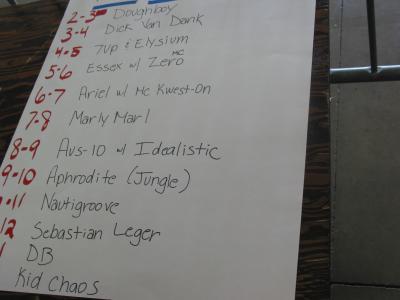 2-3 Doughboy
3-4 Dick Van Dank
4-5 7up & Elysium
5-6 Essex w/ Zero MC
6-7 Ariel w/ Mc Kwest-On
7-8 Marly Marl
8-9 Aus-10 w/ Idealistic
9-10 Aphrodite (Jungle)
-11 Nautigroove
12 Sebastian Leger
1 DB
Kid Chaos